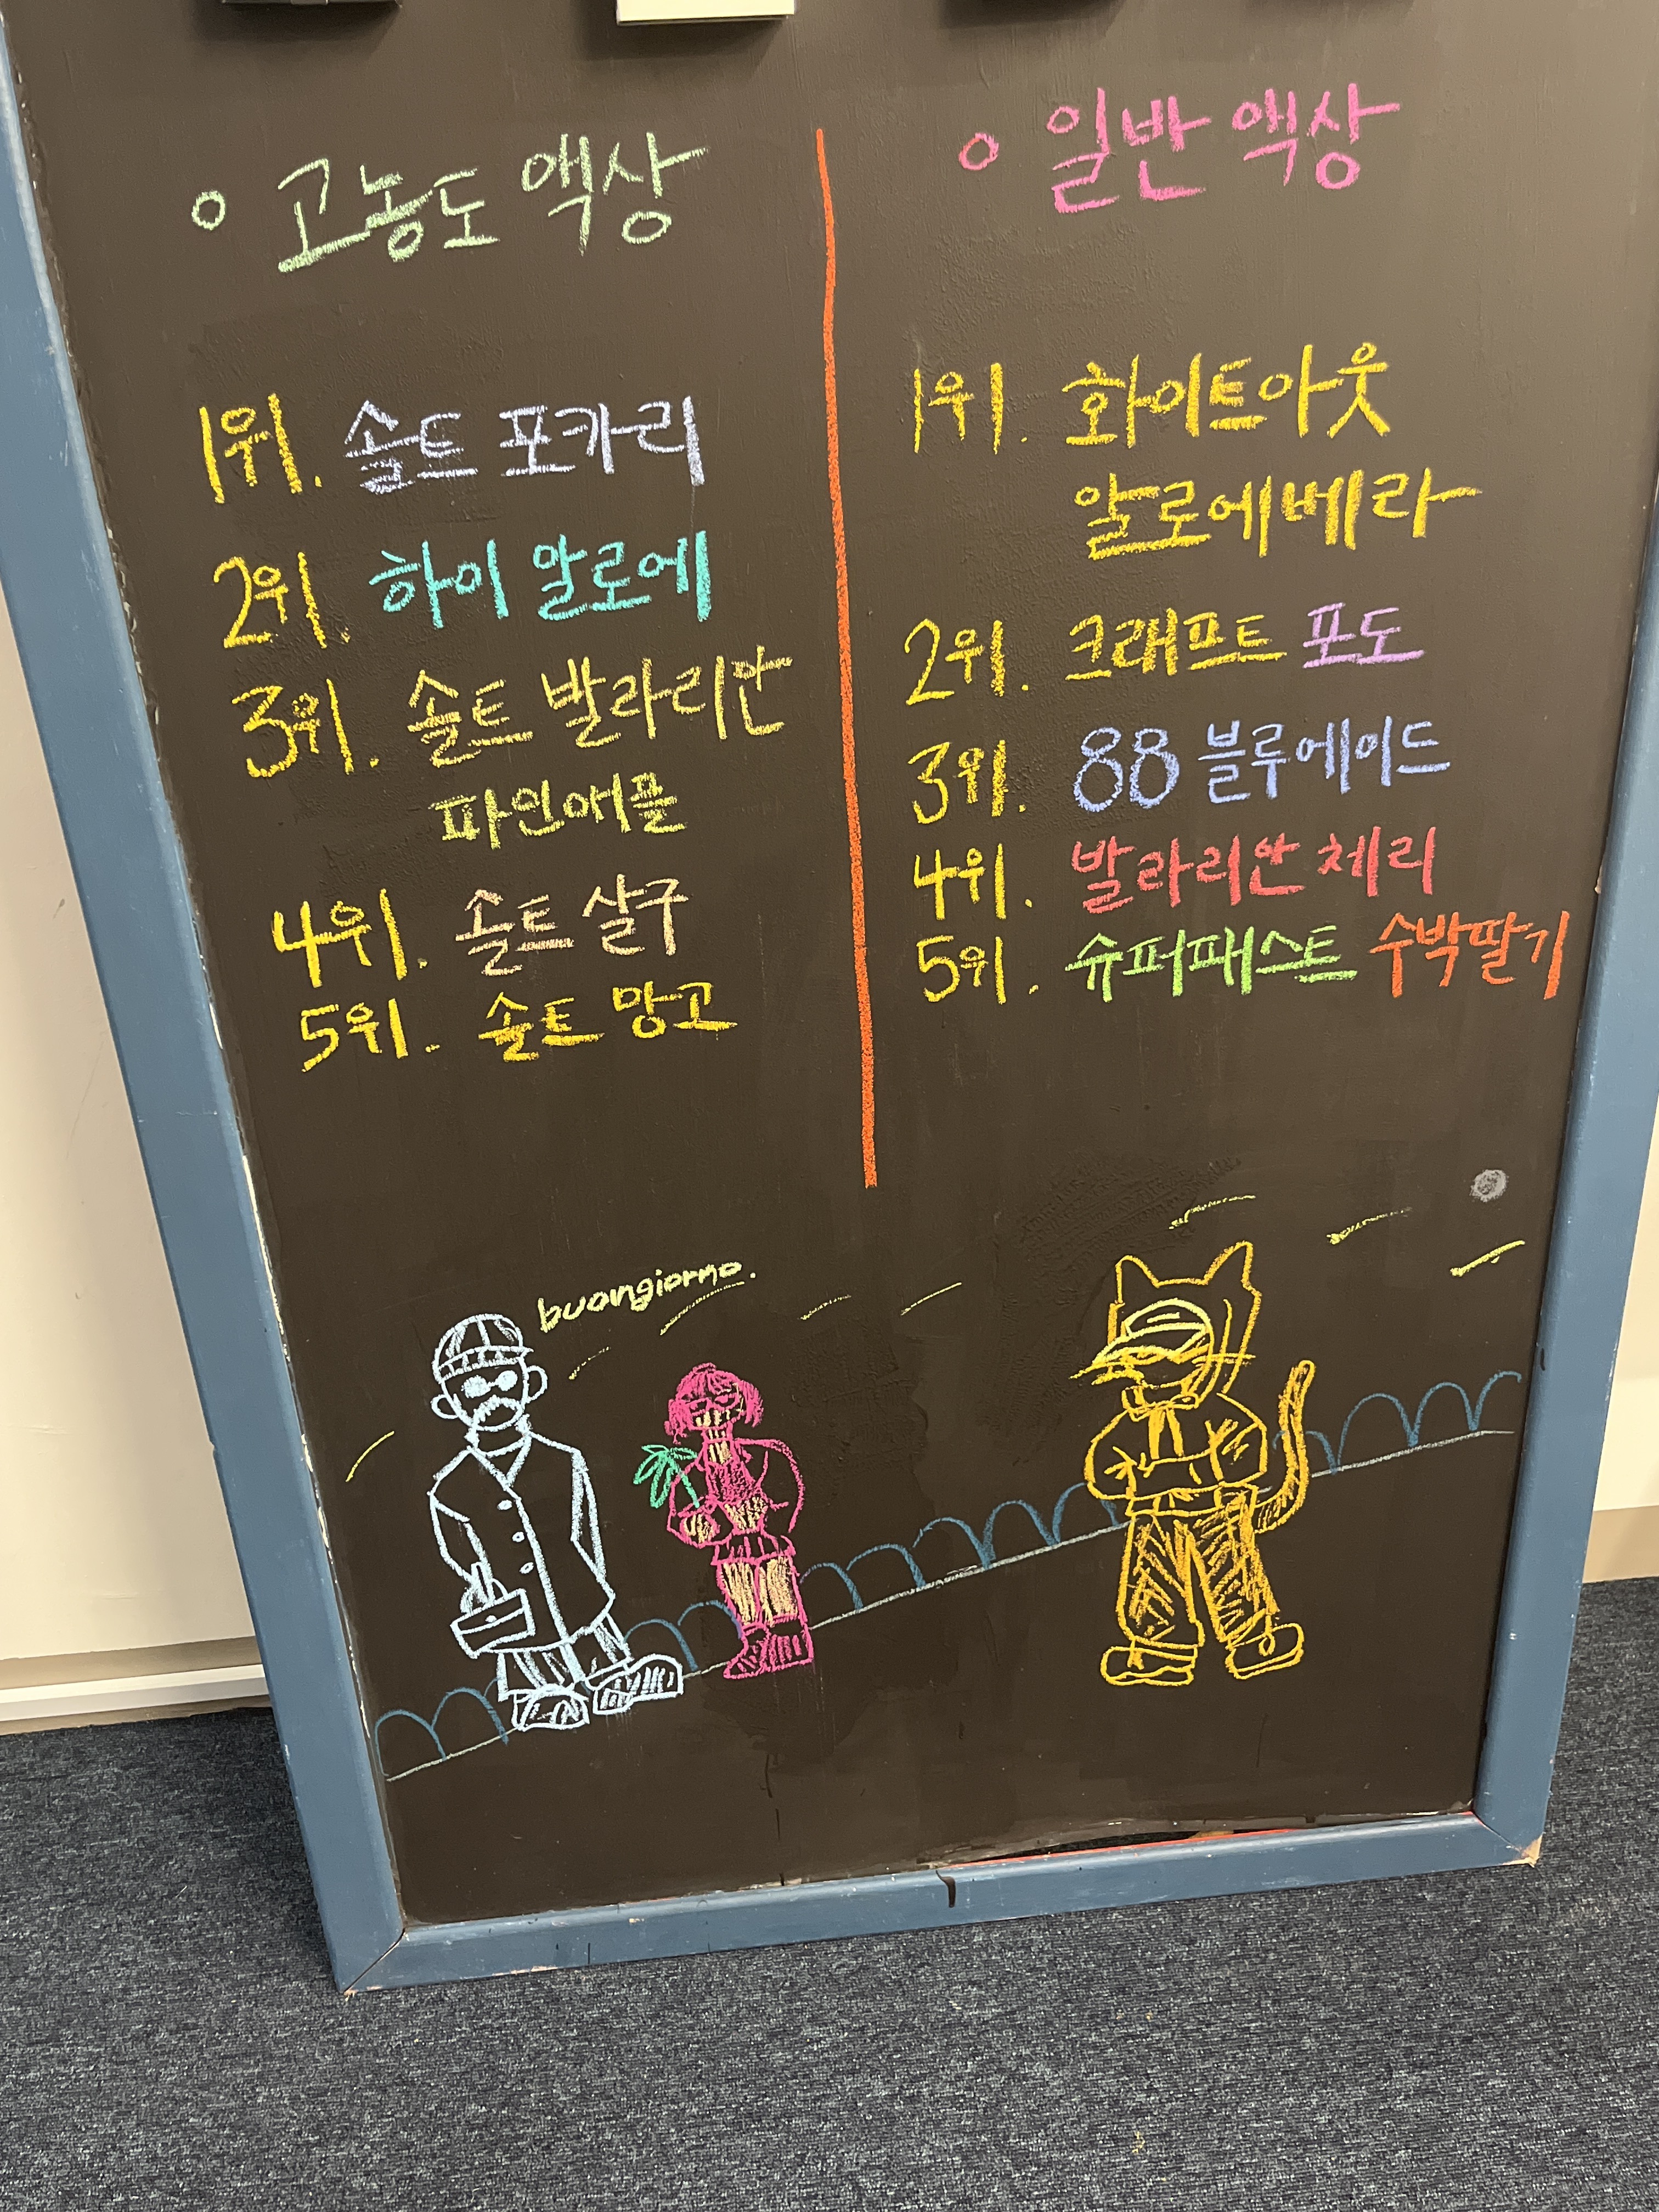 고농도 액상
1위. 솔트 포카리
2위. 하이 알로에
3위. 솔트 발라리안
파인애플
4위. 솔트 살구
5위. 솔트 망고
일반 액상
1위. 화이트아웃
알로에베라
2위. 크래프트 포도
3위. 88 블루에이드
4위. 발라리안 체리
5위. 슈퍼패스트 수박딸기
buongiorno.